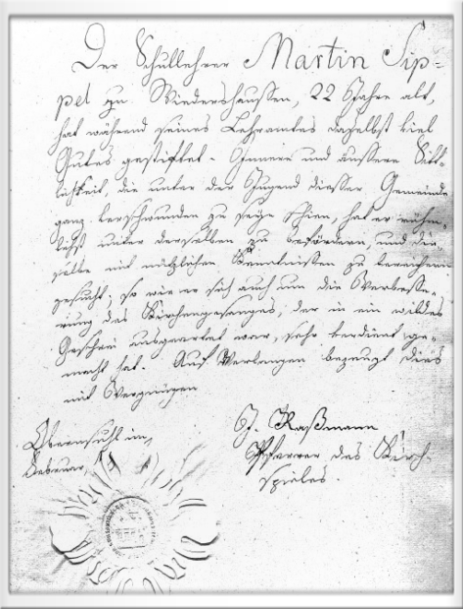 Der Schullehrer Martin Sip=
pel zu Niedershaußen, 22 Jahre alt,
hat während seines Lehramtes daselbst viel
Gutes gestiftet. Innere und äussere Sitt-
lichkeit, die unter der Jugend dieser Gemeinde
ganz verschwunden zu seyn schien, hat er rühm-
lichst unter derselben zu befördern, und die-
selbe mit nützlichen Kenntnissen zu bereichern
gesucht; so wie er sich auch um die Verbesse-
rung des Kirchengesanges, der in ein wildes
Geschrei ausgeartet war, sehr verdient ge-
macht hat. Auf Verlangen bezeugt dies
mit Vergnügen
Obernsuhl im
Februar
J. Raßmann
Pfarrer des Kirch-
spieles.